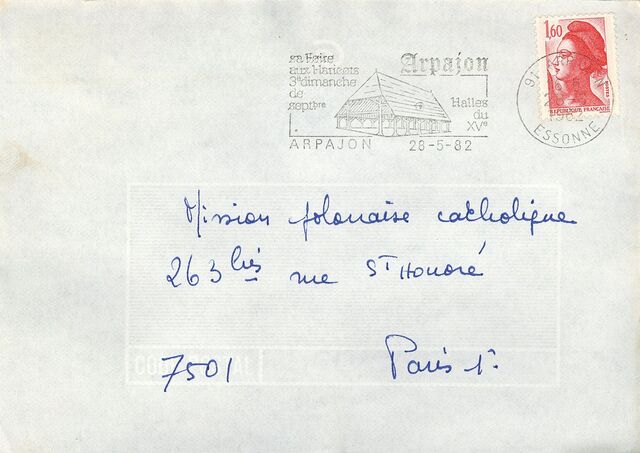 sa Foire
aux Haricots
3e dimanche
de
septbre
Arpajon
Halles
du
XVe
ARPAJON 28-5-82
1,60
REPUBLIQUE FRANÇAISE
POSTES
91
1982
ESSONNE
Mission polonaise catholique
263 bis rue St Honoré
7501 Paris 1°